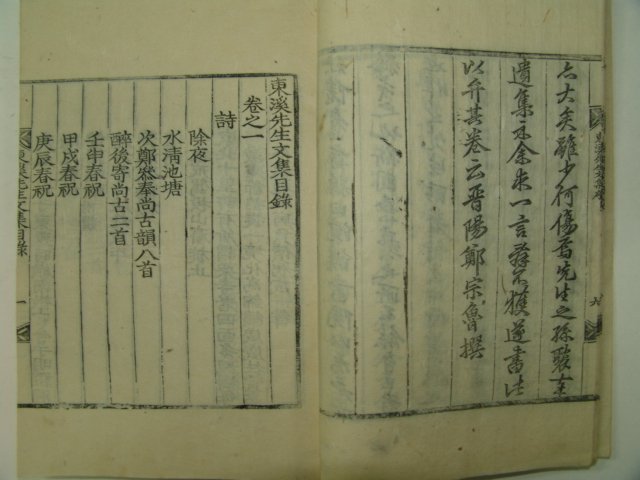 亦大矣雖少何傷焉先生之孫聚奎
遺集示余求一言辭不獲遂書此
以弁其卷云晋陽鄭宗魯撰
東溪先生文集目錄
卷之一
詩
除夜
水清池塘
次鄭叅奉尚古韻八首
醉後寄尚古二首
壬申春祝
甲戌春祝
庚辰春祝
東溪先生文集目錄 一